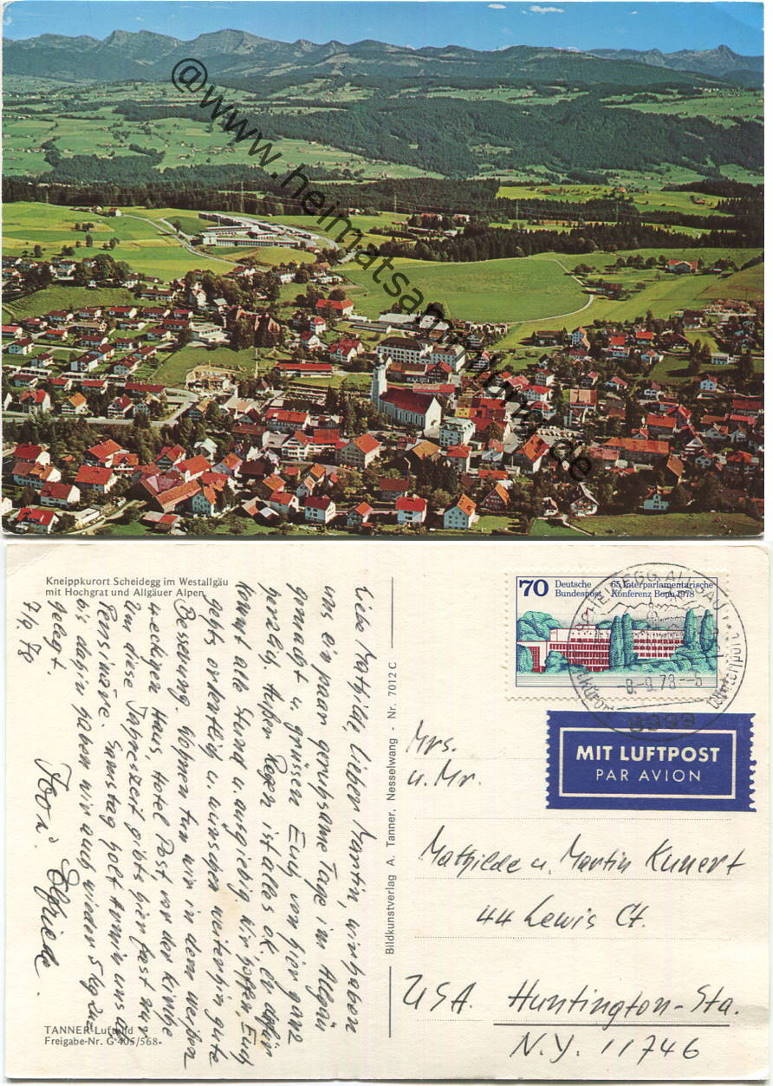 @www.heimatsammlung.de
Kneippkurort Scheidegg im Westallgäu
mit Hochgrat und Allgäuer Alpen
7/9 78
Liebe Mathilde, lieber Martin, wir haben
uns ein paar geruhsame Tage im Allgäu
gemacht u. grüssen Euch von hier ganz
herzlich. Außer Regen ist alles ok, er
kommt alle Stund u. ausgiebig. Wir hoffen, Euch
gehts ordentlich u. wünschen weiterhin gute
Besserung. Wohnen tun wir in dem weißen
4eckigen Haus, Hotel Post vor der Kirche
Um diese Jahreszeit gibts hier fast nur
Pensionäre. Samstag holt Armin uns
bis dahin haben wir auch wieder 5 kg zu
gelegt.
Elfriede.
TANNER-Luftbild
Freigabe-Nr. G 405/568-
Bildkunstverlag A. Tanner, Nesselwang - Nr. 7012 C
70 Deutsche Bundespost
65. Interparlamentarische
Konferenz Bonn 1978
SCHEIDEGG, ALLGÄU
-8.-9.78-5
MIT LUFTPOST
PAR AVION
Mrs.
u. Mr.
Mathilde u. Martin Kunert
44 Lewis Ct.
USA. Huntington-Sta.
N.Y. 11746